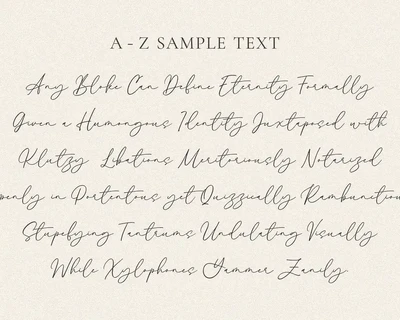 A - Z SAMPLE TEXT
Any Bloke Can Define Eternity Formally
Given a Humongous Identity Juxtaposed with
Klutzy Libations Meritoriously Notarized
in Portentous yet Quizzically
Stupefying Tantrums Undulating Visually
While Xylophones Yammer Zanily.